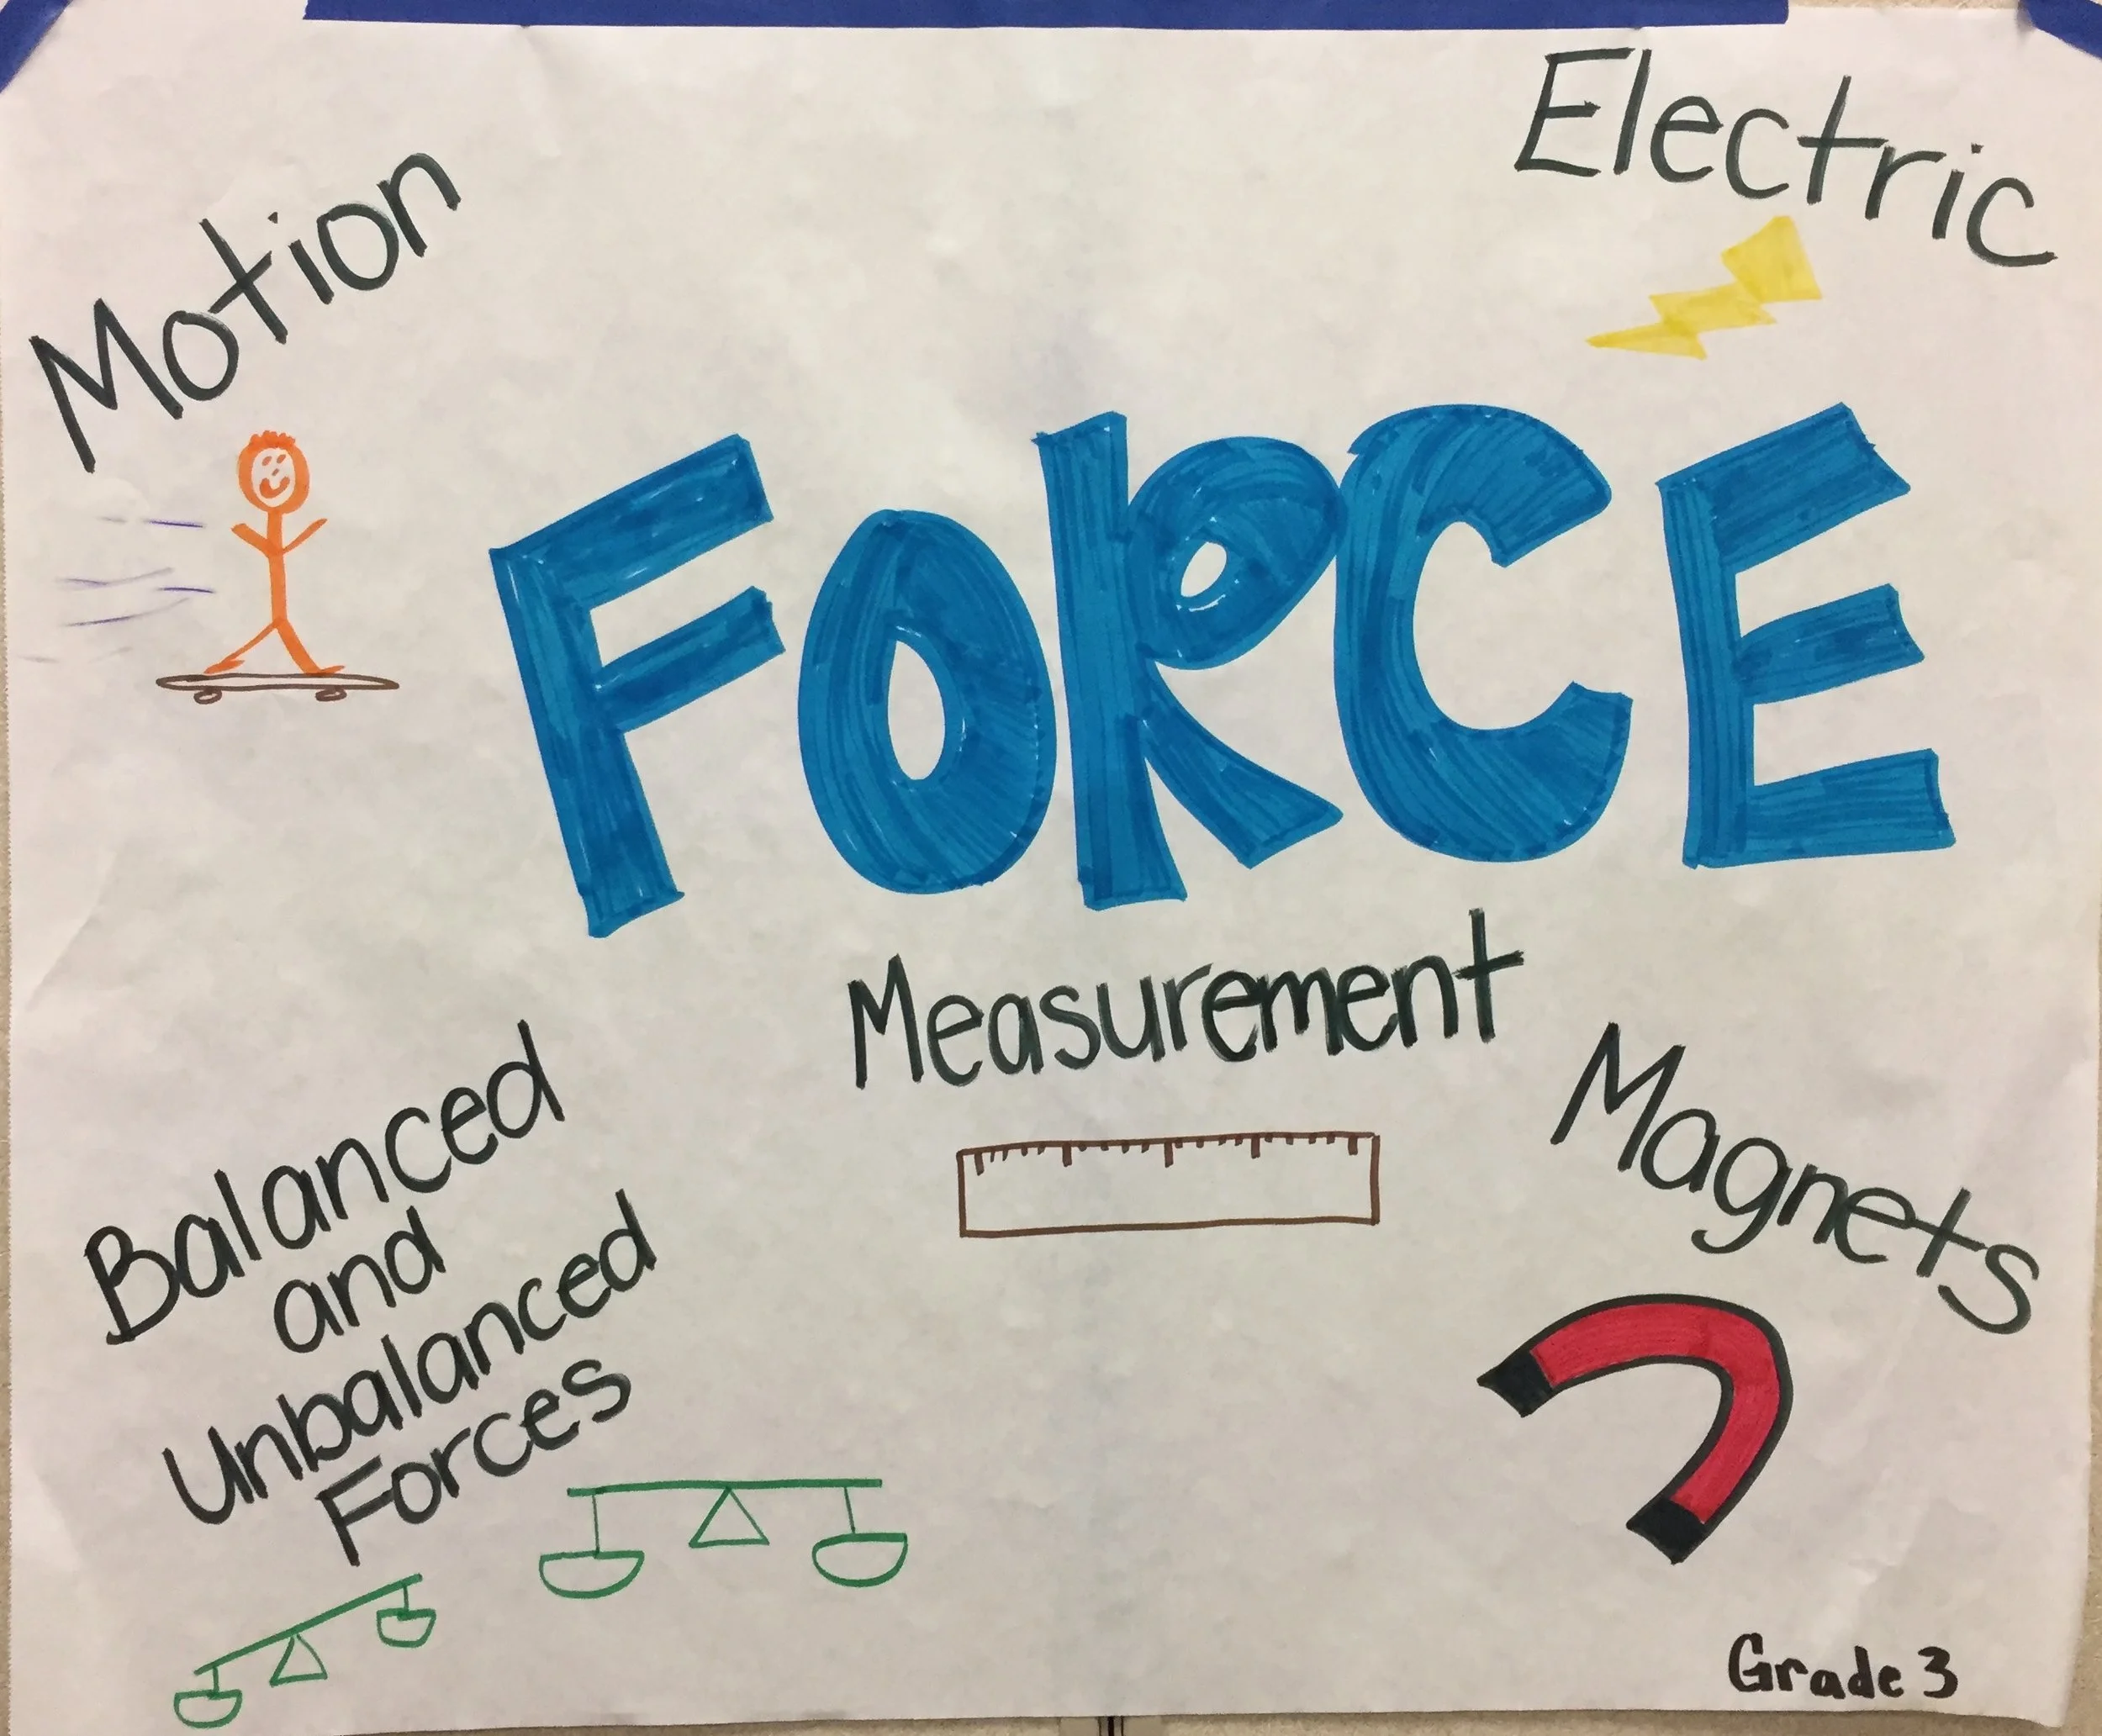 Motion
Electric
FORCE
Measurement
Balanced
and
Unbalanced
Forces
Magnets
Grade 3